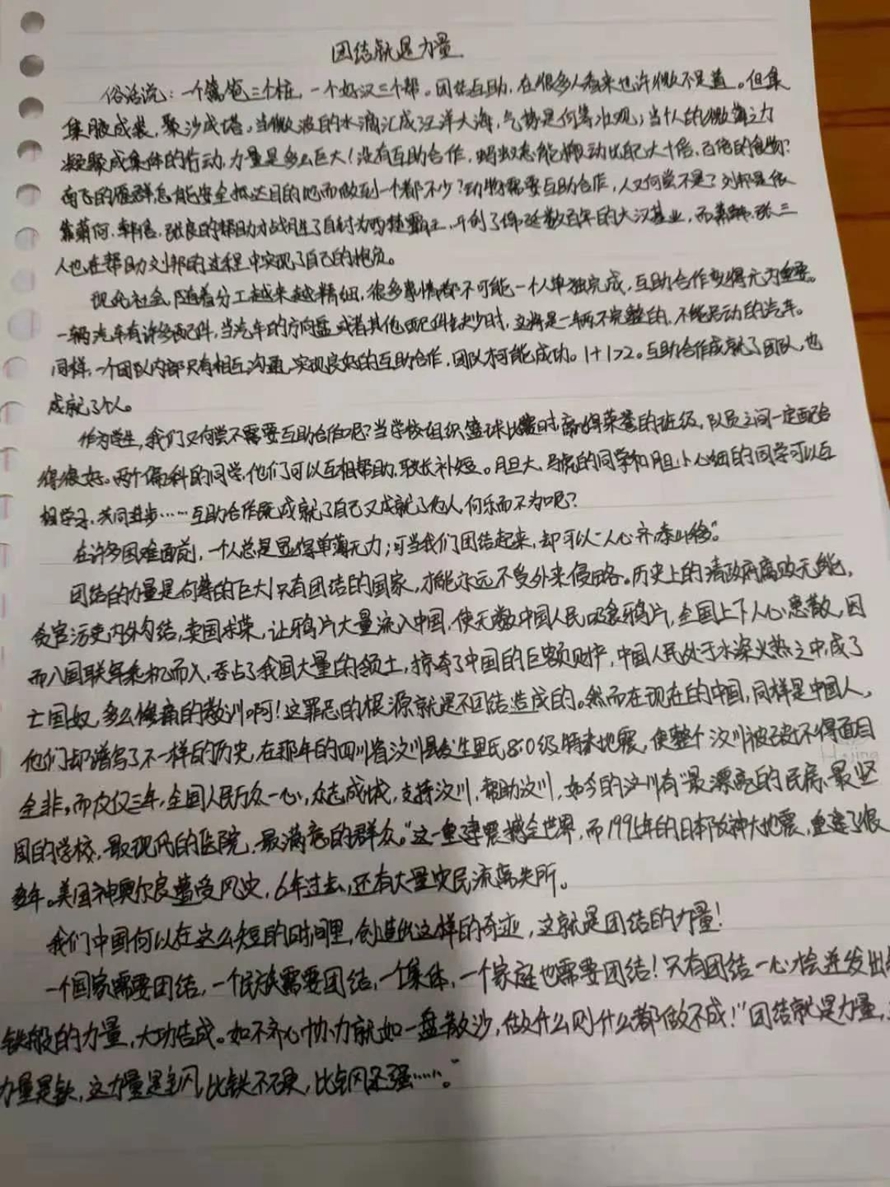 团结就是力量
俗话说：一个篱笆三个桩，一个好汉三个帮。团结互助，在很多人看来也许微不足道。但集
集腋成裘，聚沙成塔。当微波的水滴汇成汪洋大海，气势是何等壮观；当个人的微薄之力
凝聚成集体的行动，力量是多么巨大！没有互助合作，蚂蚁怎能搬动比它大十倍、百倍的食物？
南飞的雁群怎能安全抵达目的地而做到一个都不少？动物需要互助合作，人又何尝不是？刘邦是依
靠萧何、韩信、张良的帮助才战胜了自封为西楚霸王，开创了绵延数百年的大汉基业，而萧韩、张三
人也在帮助刘邦的过程中实现了自己的抱负。
现代社会，随着分工越来越精细，很多事情都不可能一个人单独完成，互助合作变得尤为重要。
一辆汽车有许多配件，当汽车的方向盘或者其他配件缺少时，这将是一辆不完整的、不能启动的汽车。
同样，一个团队内部只有相互沟通，实现良好的互助合作，团队才可能成功。1+1>2。互助合作成就了团队，也
成就了个人。
作为学生，我们又何尝不需要互助合作呢？当学校组织篮球比赛时，赢得荣誉的班级，队员之间一定配合
得很好。两个偏科的同学，他们可以互相帮助，取长补短。胆大、马虎的同学和胆小心细的同学可以互
相学习，共同进步……互助合作既成就了自己又成就了他人，何乐而不为呢？
在许多困难面前，一个人总是显得单薄无力；可当我们团结起来，却可以“人心齐，泰山移”。
团结的力量是何等的巨大！只有团结的国家，才能永远不受外来侵略。历史上的清政府腐败无能，
贪官污吏内外勾结，卖国求荣，让鸦片大量流入中国，使无数中国人民吸食鸦片，全国上下人心患散，因
而八国联军乘机而入，吞占了我国大量的领土，掠夺了中国的巨额财产，中国人民处于水深火热之中，成了
亡国奴，多么惨痛的教训啊！这罪恶的根源就是不团结造成的。然而在现在的中国，同样是中国人，
他们却谱写了不一样的历史，在那年的四川省汶川县发生里氏8.0级特来地震，使整个汶川被破坏得面目
全非。而仅仅三年，全国人民万众一心，众志成城，支持汶川，帮助汶川，如今的汶川有“最漂亮的民房、最坚
固的学校、最现代的医院、最满意的群众。”这一重建震撼全世界，而1995年的日本阪神大地震，重建了很
多年。美国神奥尔良遭受风灾，6年过去，还有大量灾民流离失所。
我们中国何以在这么短的时间里，创造出这样的奇迹，这就是团结的力量！
一个国家需要团结，一个民族需要团结，一个集体，一个家庭也需要团结！只有团结一心，恰迸发出
铁般的力量，大功告成。如不齐心协力就如一盘散沙，做什么则什么都做不成！“团结就是力量，
力量是铁，这力量是钢，比铁不硬，比钢还强……。”